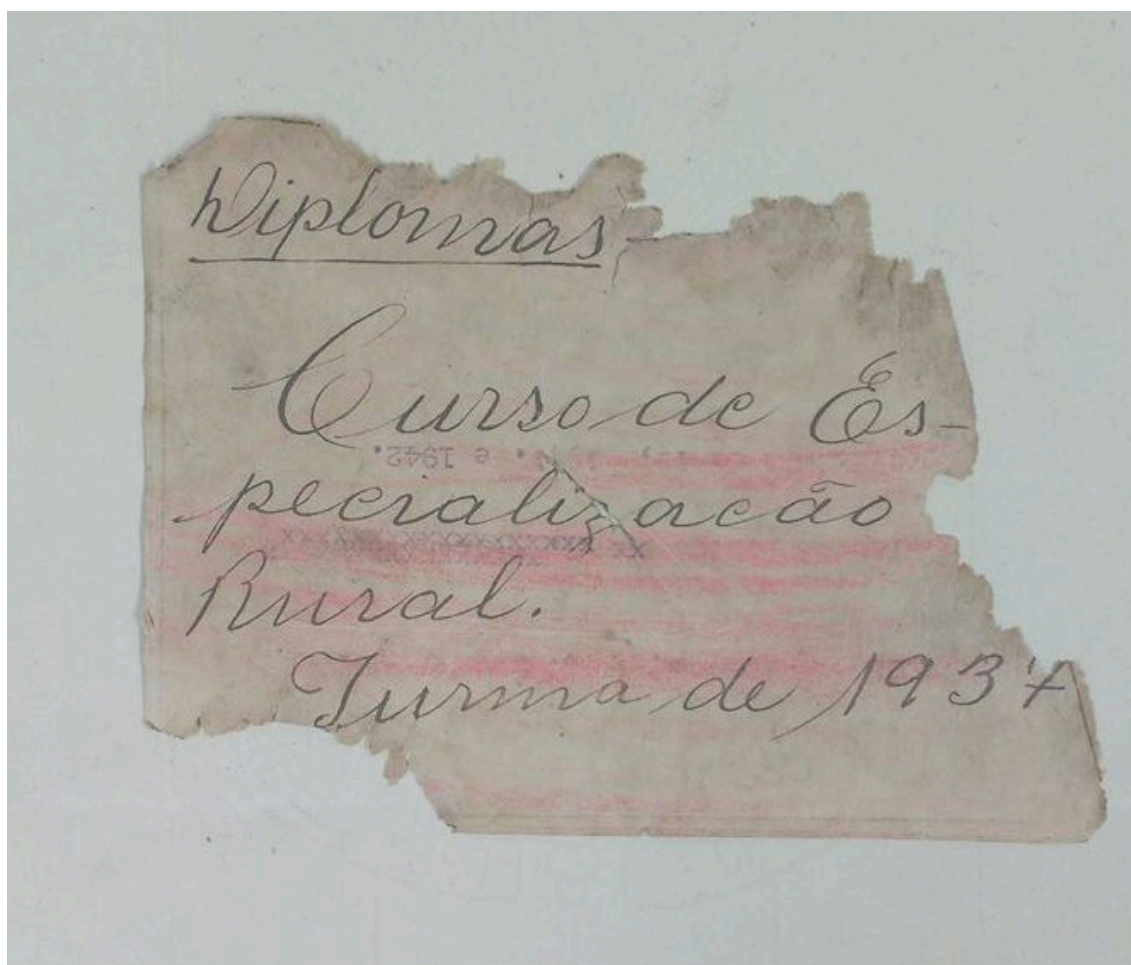 Diplomas
Curso de Es-
e 1942.
pecialização
Rural.
Turma de 1937